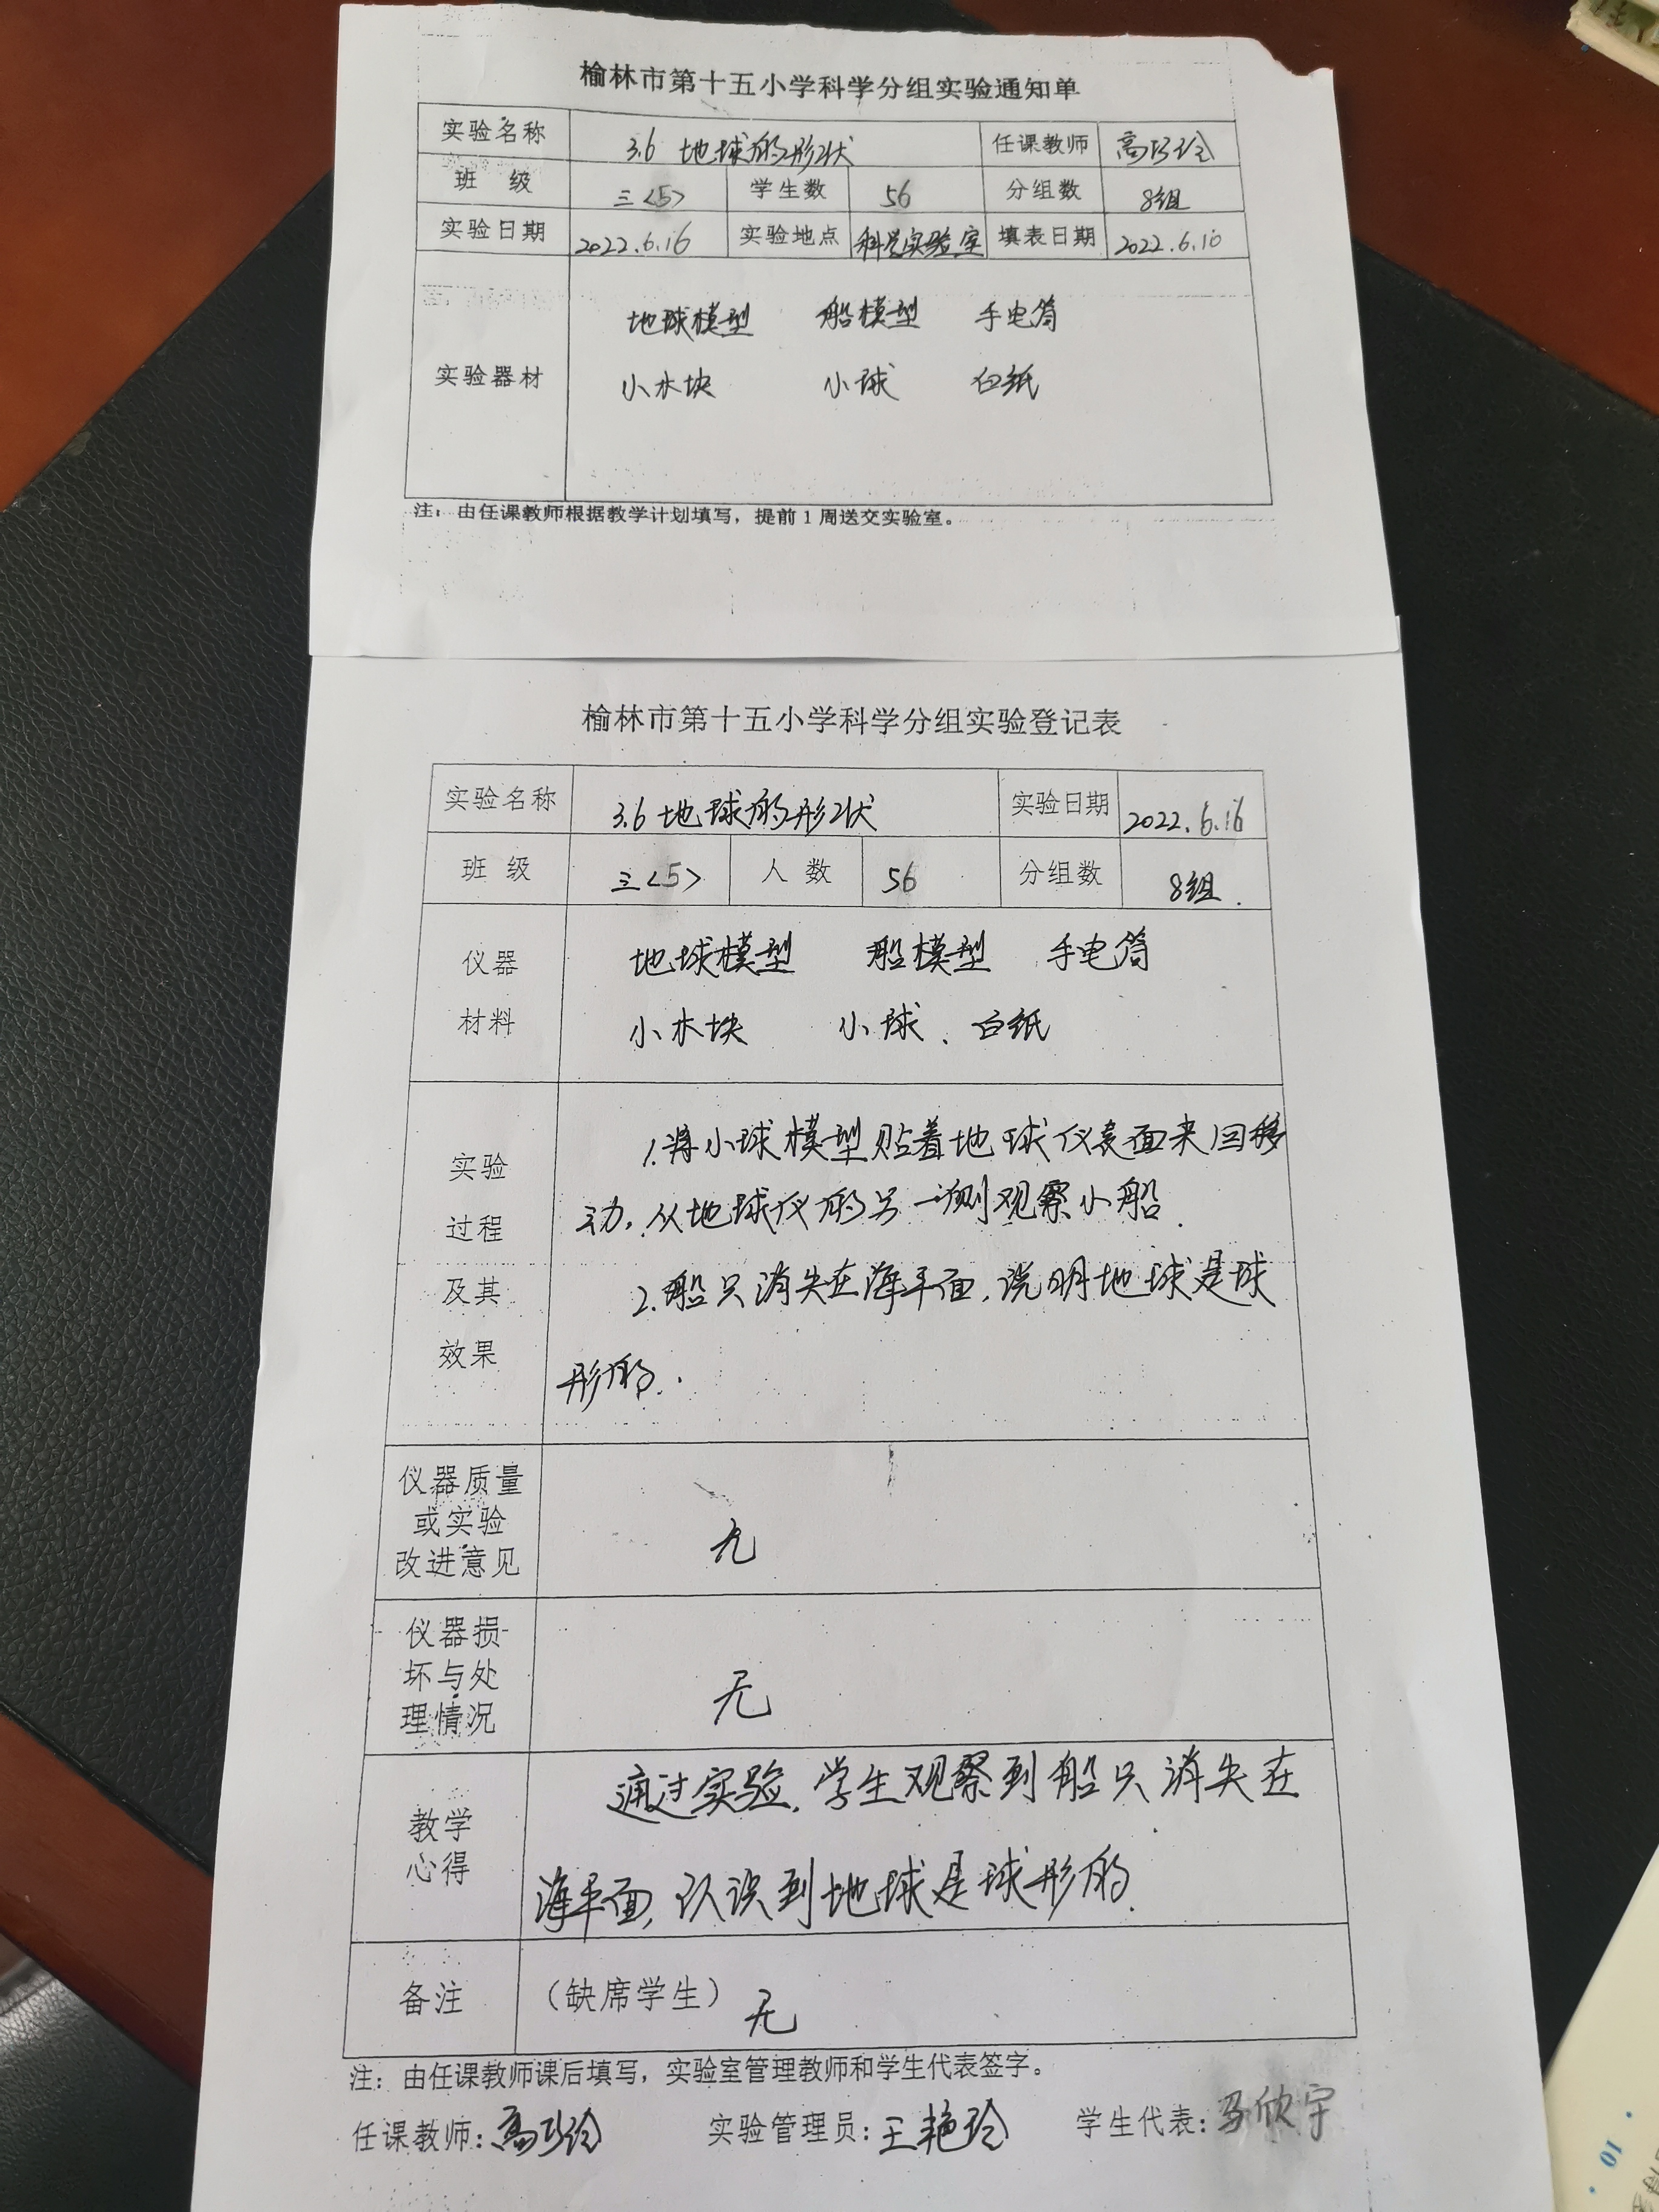 榆林市第十五小学科学分组实验通知单
实验名称 3.6 地球的形状 任课教师 高巧玲
班 级 三<5> 学生数 56 分组数 8组
实验日期 2022.6.16 实验地点 科学实验室 填表日期 2022.6.10
地球模型 船模型 手电筒
实验器材 小木块 小球 白纸
注：由任课教师根据教学计划填写，提前1周送交实验室。
榆林市第十五小学科学分组实验登记表
实验名称 3.6 地球的形状 实验日期 2022.6.16
班 级 三<5> 人 数 56 分组数 8组.
仪器 地球模型 船模型 手电筒
材料 小木块 小球、白纸
实验 1.将小球模型贴着地球仪表面来回移
过程 动,从地球仪的另一侧观察小船.
及其 2.船只消失在海平面,说明地球是球
效果 形的.
仪器质量
或实验
改进意见 无
仪器损
坏与处
理情况 无
通过实验,学生观察到船只消失在
教学
心得 海平面,认识到地球是球形的.
备注 （缺席学生） 无
注：由任课教师课后填写，实验室管理教师和学生代表签字。
任课教师：高巧玲 实验管理员：王艳玲 学生代表：马欣宇
10